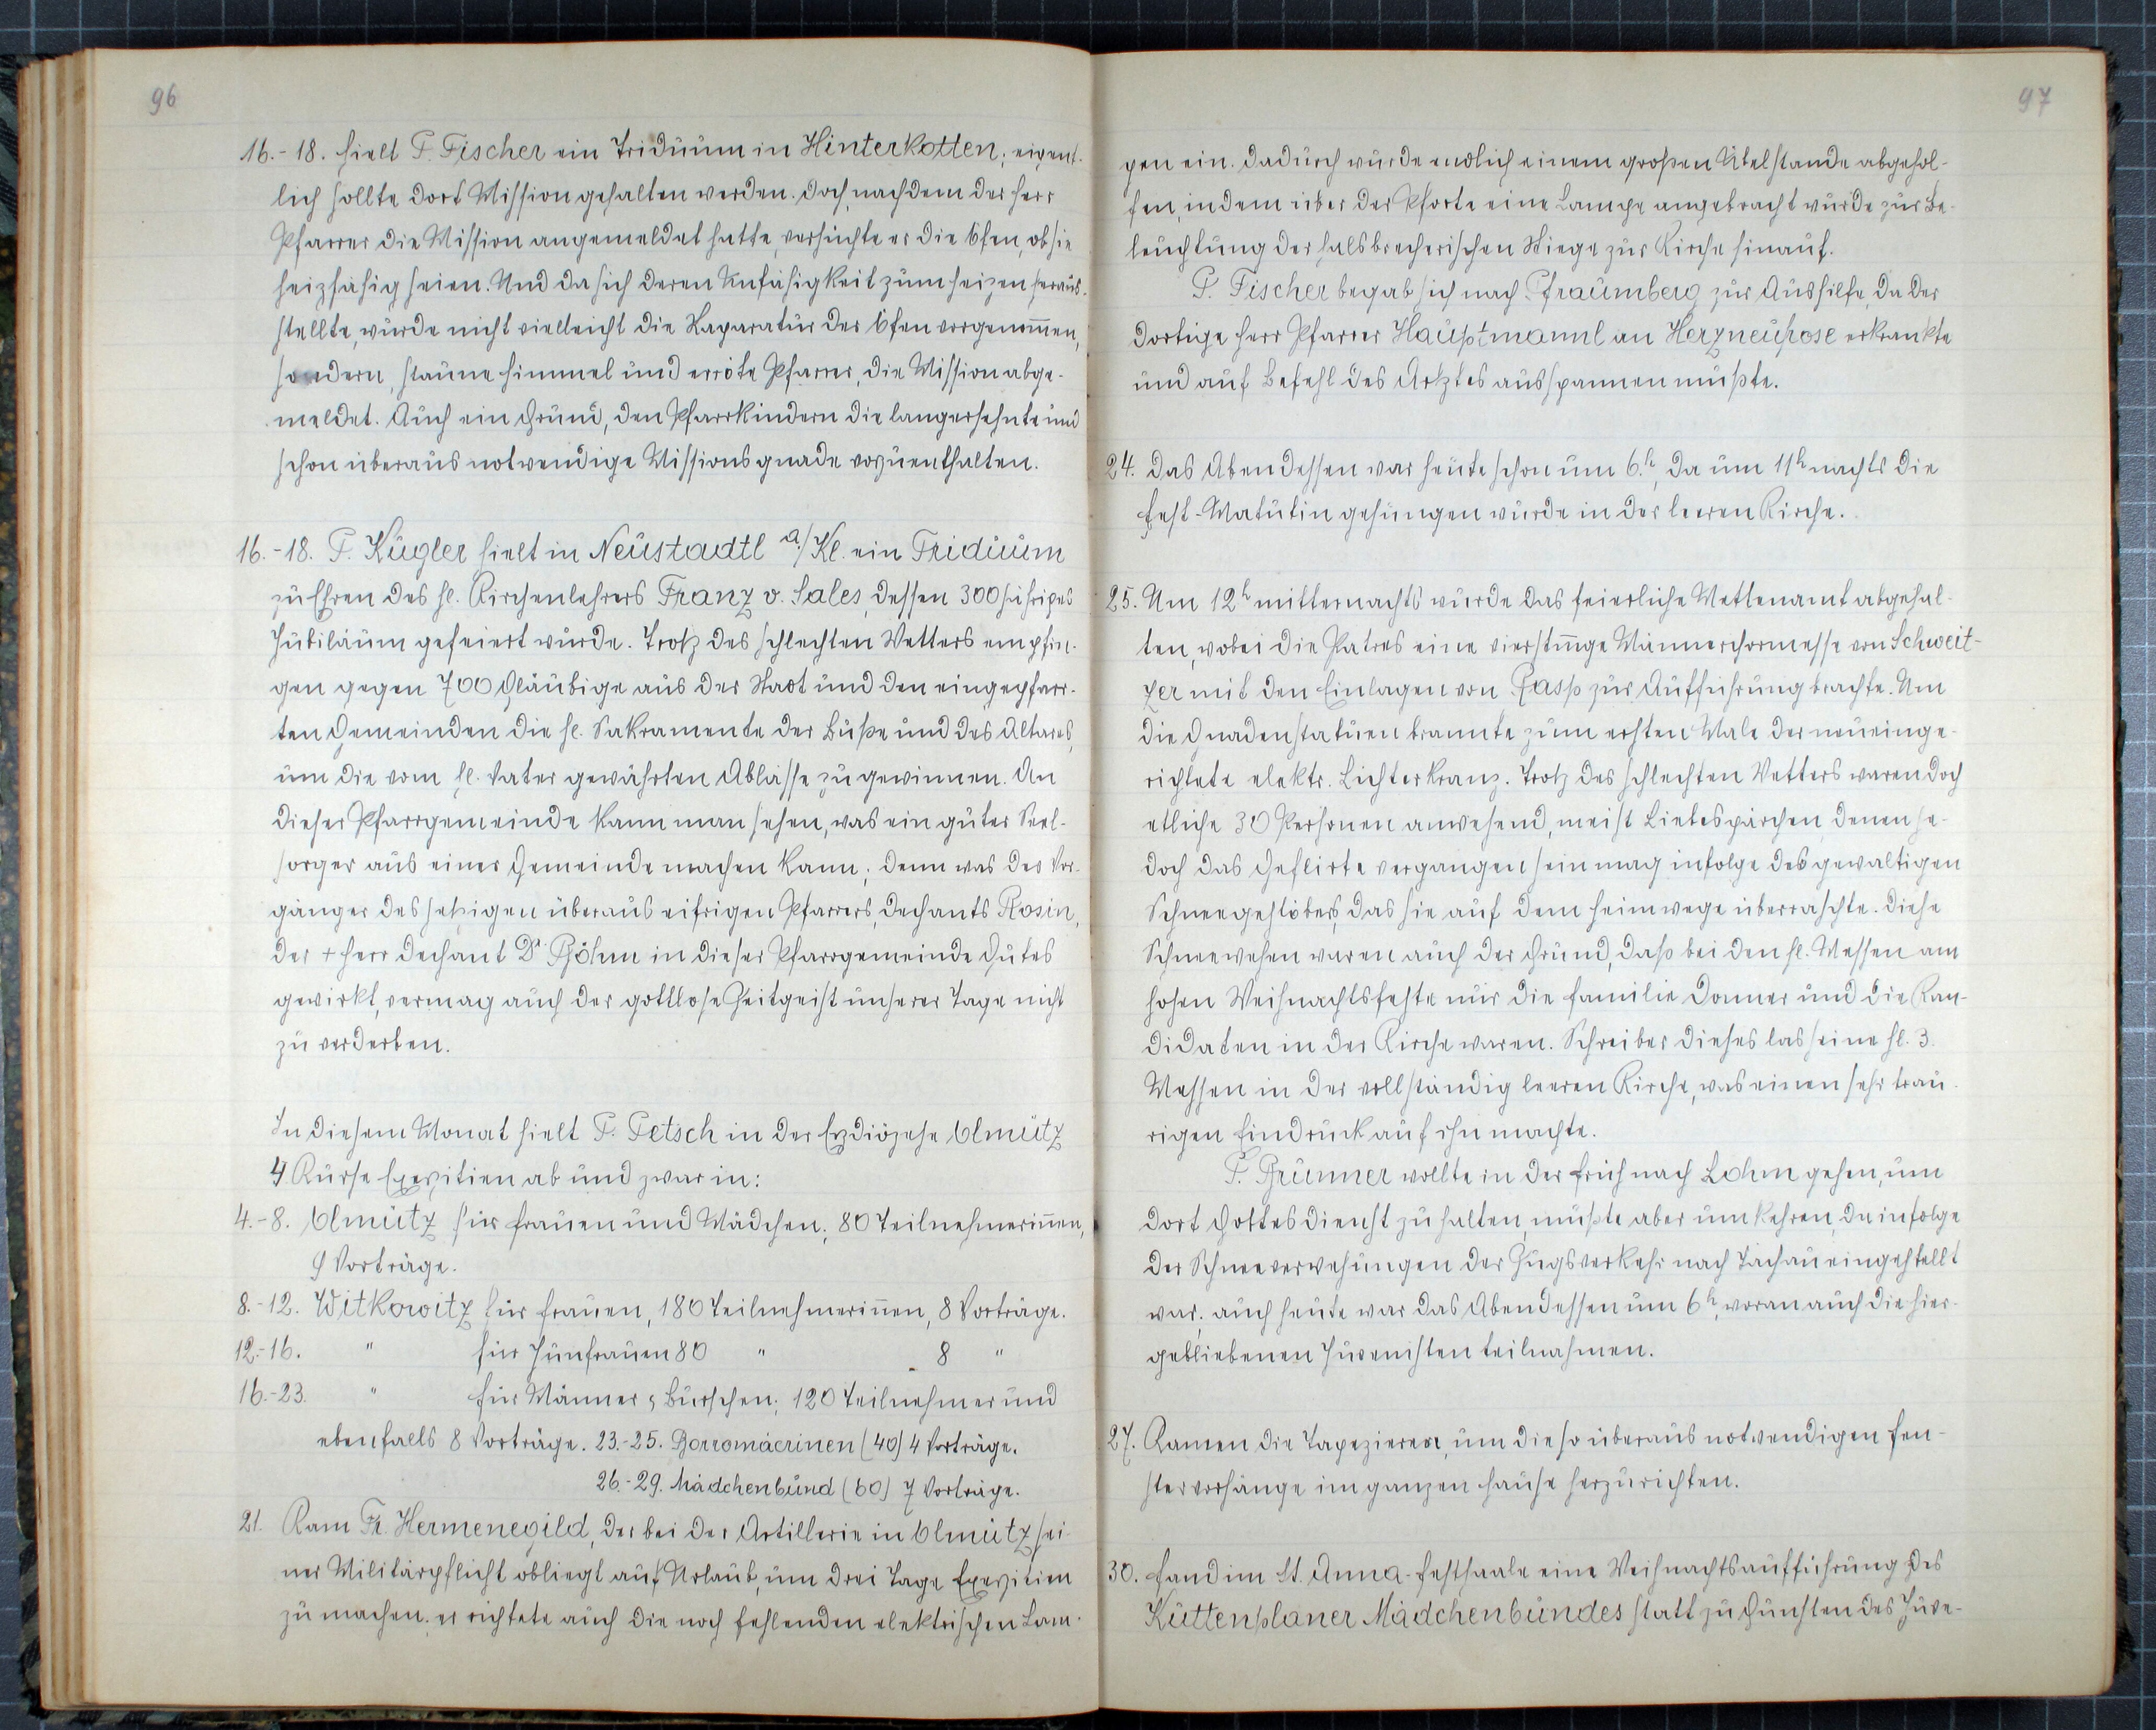 96
16.-18. hielt P. Fischer ein Triduum in Hinterkotten; eigent-
lich sollte dort Mission gehalten werden. Doch nachdem der Herr
Pfarrer die Mission angemeldet hatte, versuchte er die Öfen, ob sie
heizfähig seien. Und da sich deren Unfähigkeit zum heizen heraus-
stellte, wurde nicht vielleicht die Raparatur der Öfen vorgenommen,
sondern, staune Himmel und erröte Pfarrer, die Mission abge-
meldet. Auch ein Grund, den Pfarrkindern die langersehnte und
schon überaus notwendige Missionsgnade vozuenthalten.
16.-18. P. Kugler hielt in Neustadtl a/Kl. ein Triduum
zu Ehren des hl. Kirchenlehrers Franz v. Sales, dessen 300 jähriges
Jubiläum gefeiert wurde. Trotz des schlechten Wetters empfin-
gen gegen 700 Gläubige aus der Stadt und den eingepfarr-
ten Gemeinden die hl. Sakramente der Buße und des Altares,
um die vom hl. Vater gewährten Ablässe zu gewinnen. An
dieser Pfarrgemeinde kann man sehen, was ein guter Seel-
sorger aus einer Gemeinde machen kann; denn was der Vor-
gänger des jetzigen überaus eifrigen Pfarrers, Dechants Rosin,
der + Herr Dechant Dr Böhm in dieser Pfarrgemeinde Gutes
gewirkt, vermag auch der gottlose Zeitgeist unserer Tage nicht
zu verderben.
In diesem Monat hielt P. Petsch in der Erzdiözese Olmütz
4 Kurse Exerzitien ab und zwar in:
4.-8. Olmütz für Frauen und Mädchen; 80 Teilnehmerinnen,
9 Vorträge.
8.-12. Witkowitz für Frauen, 180 Teilnehmerinnen, 8 Vorträge.
12.-16. " für Junfrauen 80 " 8 "
16.-23. " für Männer & Burschen; 120 Teilnehmer und
ebenfalls 8 Vorträge. 23.-25. Borromäerinen (40) 4 Vorträge.
26.-29. Mädchenbund (60) 7 Vorträge.
21. Kam Fr. Hermenegild, der bei der Artillerie in Olmütz sei-
ner Militärpflicht obliegt auf Urlaub, um drei Tage Exerzitien
zu machen. er richtete auch die noch fehlenden elektrischen Lam-
97
pen ein. Dadurch wurde endlich einem großen Übelstande abgehol-
fen, indem über der Pforte eine Lampe angebracht wurde zur Be-
leuchtung der halsbrecherischen Stiege zur Kirche hinauf.
P. Fischer begab sich nach Pfraumberg zur Aushilfe, da der
dortige Herr Pfarrer Hauptmannl an Herzneurose erkrankte
und auf Befehl des Arztes ausspannen mußte.
24. Das Abendessen war heute schon um 6.h, da um 11h nachts die
Fest-Matutin gesungen wurde in der leeren Kirche.
25. Um 12h mitternachts wurde das feierliche Mettenamt abgehal-
ten, wobei die Patres eine vierstimmge Männerchormesse von Schweit-
zer mit den Einlagen von Gasp zur Aufführung brachte. Um
die Gnadenstatuen brannte zum ersten Male der neueinge-
richtete elektr. Lichterkranz. Trotz des schlechten Wetters waren doch
etliche 30 Personen anwesend, meist Liebespärchen, denen je-
doch das Geflirte vergangen sein mag infolge des gewaltigen
Schneegestöbers, das sie auf dem Heimwege überraschte. Diese
Schneewehen waren auch der Grund, daß bei den hl. Messen am
hohen Weihnachtsfeste nur die Familie Donner und die Kan-
didaten in der Kirche waren. Schreiber dieses las seine hl. 3.
Messen in der vollständig leeren Kirche, was einen sehr trau-
rigen Eindruck auf ihn machte.
P. Brunner wollte in der Früh nach Lohm gehen, um
dort Gottesdienst zu halten, mußte aber umkehren, da infolge
der Schneeverwehungen der Zugsverkehr nach Tachau eingestellt
war. auch heute war das Abendessen um 6h, woran auch die hier-
gebliebenen Juvenisten teilnahmen.
27. Kamen die Tapezierer, um die so überaus notwendigen Fen-
stervorhänge im ganzen Hause herzurichten.
30. Fand im St. Anna-Festsaale eine Weihnachtsaufführung des
Kuttenplaner Mädchenbundes statt zu Gunsten des Juve-